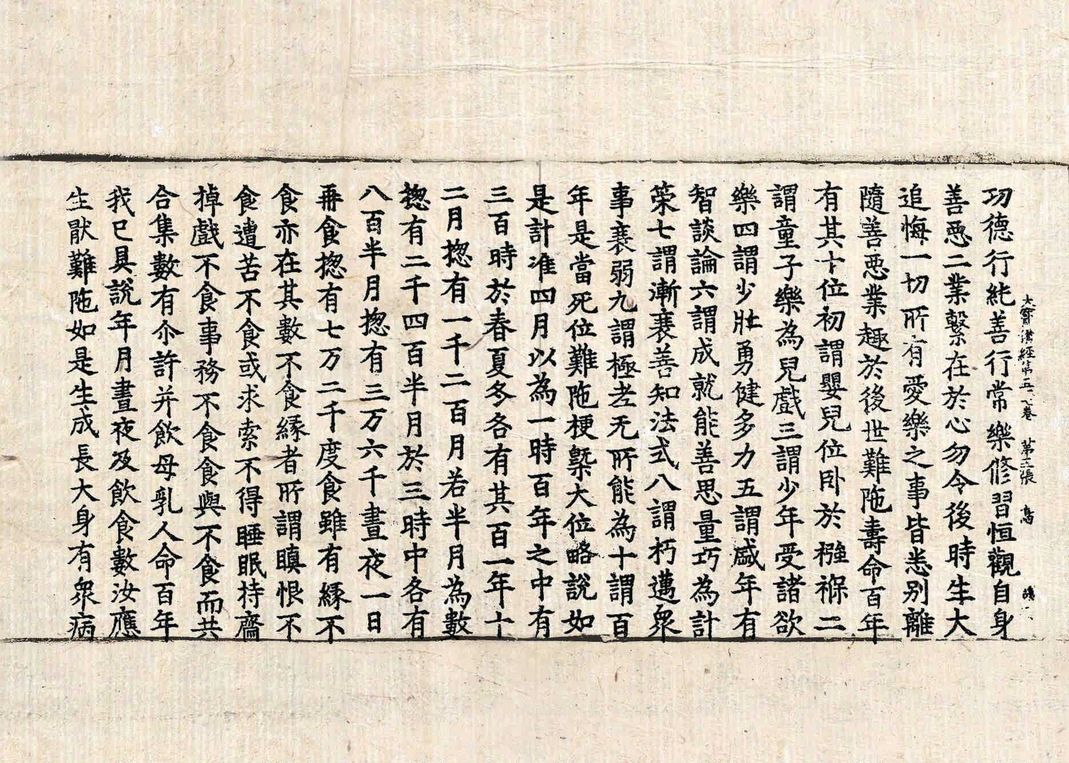 功德行純善行常樂修習恒觀自身
大寶積經第五七卷 第三張 鳥
善惡二業繫在於心勿令後時生大
追悔一切所有愛樂之事皆悉別離
隨善惡業趣於後世難陁壽命百年
有其十位初謂嬰兒位卧於襁褓二
謂童子樂為兒戲三謂少年受諸欲
樂四謂少壯勇健多力五謂盛年有
智談論六謂成就能善思量巧為計
䇿七謂漸衰善知法式八謂朽邁衆
事衰弱九謂極老无所能為十謂百
年是當死位難陁梗槩大位略說如
是計准四月以為一時百年之中有
三百時於春夏冬各有其百一年十
二月捴有一千二百月若半月為數
捴有二千四百半月於三時中各有
八百半月捴有三万六千晝夜一日
再食捴有七万二千度食雖有緣不
食亦在其數不食緣者所謂瞋恨不
食遭苦不食或求索不得睡眠持齋
掉戲不食事務不食食與不食而共
合集數有尒許并飲母乳人命百年
我已具說年月晝夜及飲食數汝應
生猒難陁如是生成長大身有衆病